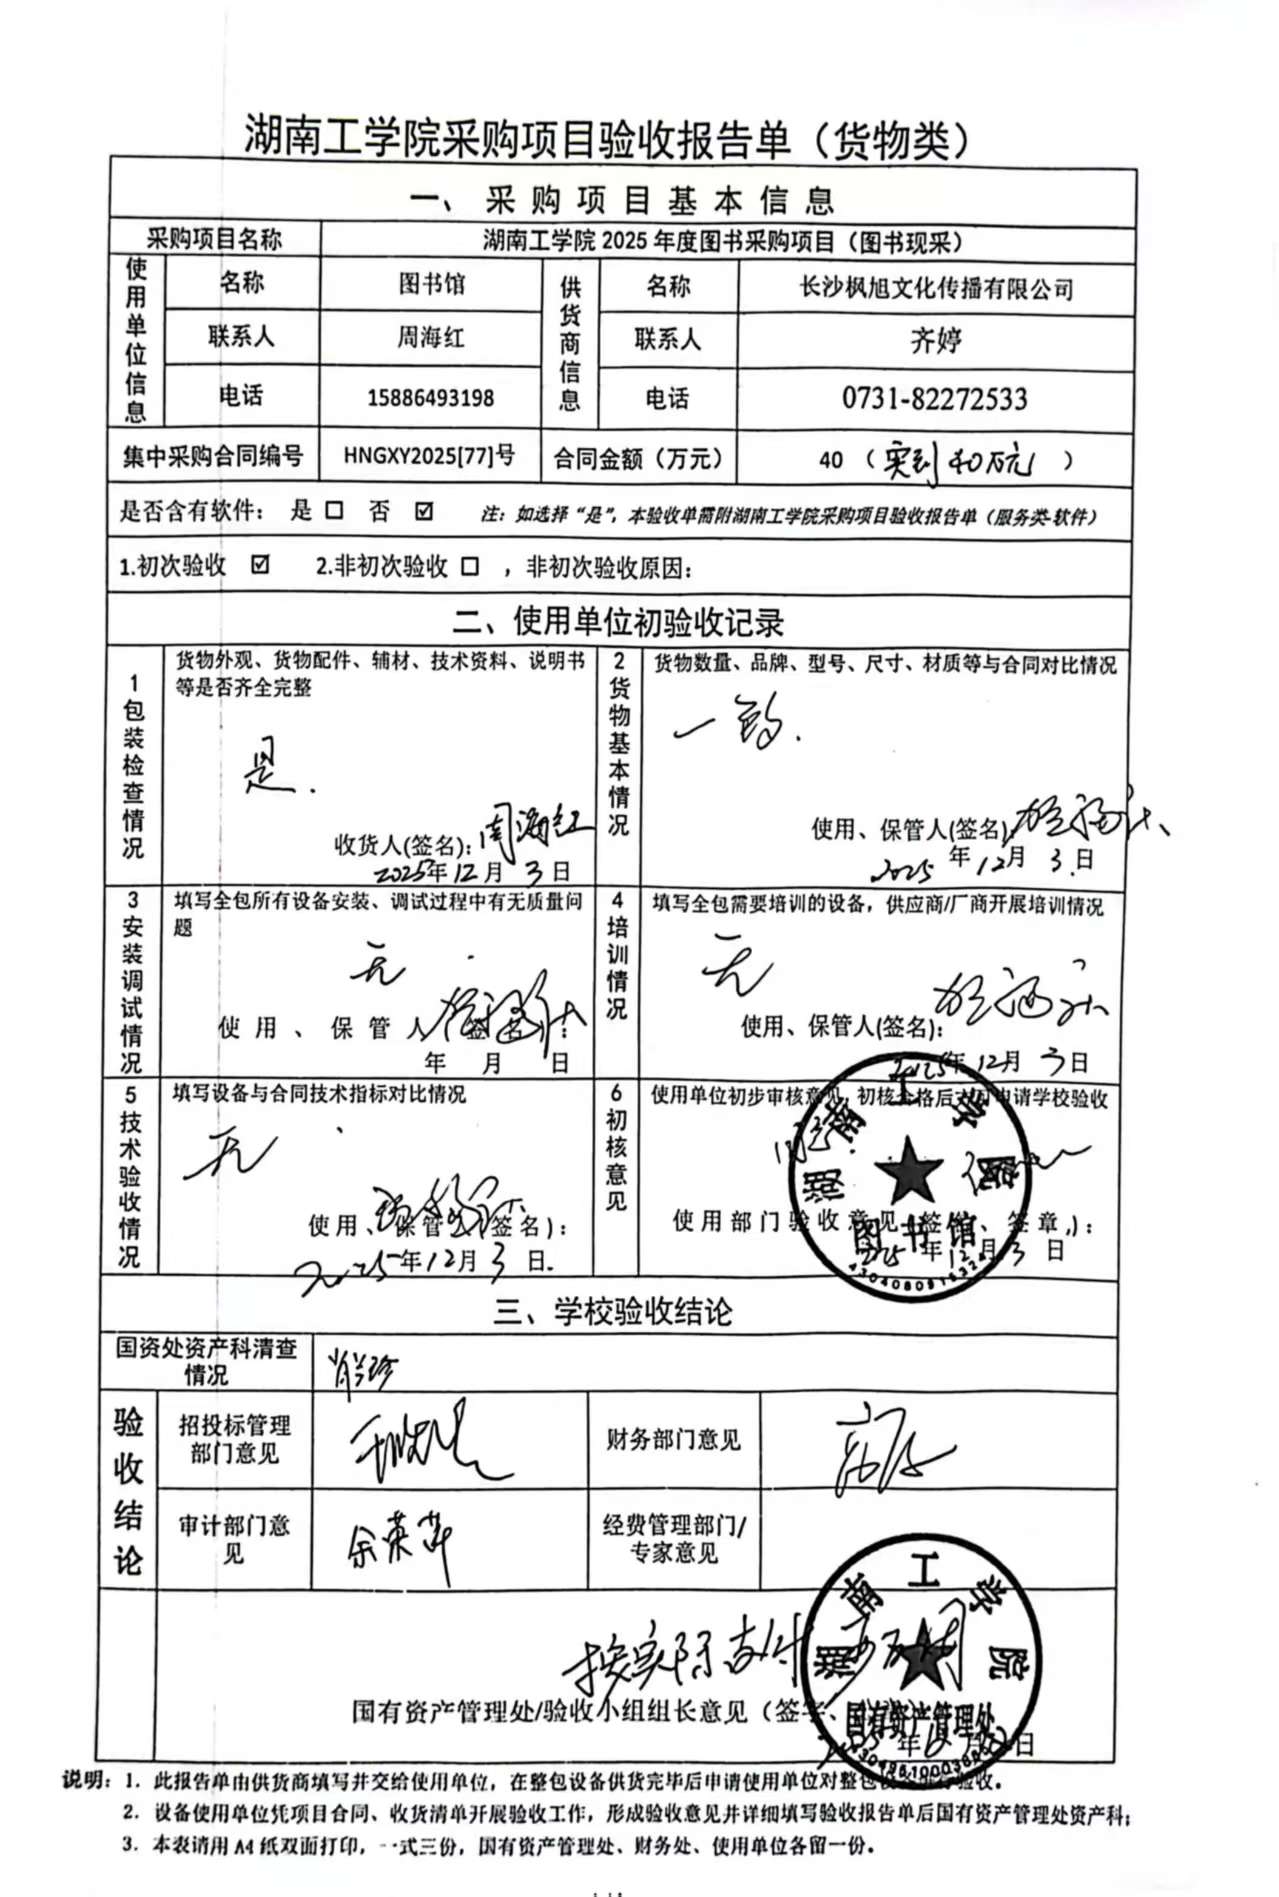 湖南工学院采购项目验收报告单（货物类）
一、采购项目基本信息
采购项目名称 湖南工学院 2025 年度图书采购项目（图书现采）
使用单位信息 名称 图书馆 供货商信息 名称 长沙枫旭文化传播有限公司
联系人 周海红 联系人 齐婷
电话 15886493198 电话 0731-82272533
集中采购合同编号 HNGXY2025[77]号 合同金额（万元） 40（实到40万元）
是否含有软件： 是 □ 否 ☑ 注：如选择“是”，本验收单需附湖南工学院采购项目验收报告单（服务类-软件）
1.初次验收 ☑ 2.非初次验收 □ ，非初次验收原因：
二、使用单位初验收记录
1 包装检查情况
货物外观、货物配件、辅材、技术资料、说明书
等是否齐全完整
是.
收货人(签名)：周海红
2025年12月3日
2 货物基本情况
货物数量、品牌、型号、尺寸、材质等与合同对比情况
一致.
使用、保管人(签名)
2025年12月3日
3 安装调试情况
填写全包所有设备安装、调试过程中有无质量问
题
无
使用、保管人(签名)：
年 月 日
4 培训情况
填写全包需要培训的设备，供应商/厂商开展培训情况
无
使用、保管人(签名)：
2025年12月3日
5 技术验收情况
填写设备与合同技术指标对比情况
无
使用、保管人(签名)：
2025年12月3日.
6 初核意见
使用单位初步审核意见，初核合格后方可申请学校验收
使用部门验收意见（签字、签章）：
2025年12月3日
湖南工学院
图书馆
三、学校验收结论
国资处资产科清查
情况
验收结论
招投标管理
部门意见
财务部门意见
审计部门意
见
余荣萍
经费管理部门/
专家意见
按实际支付
国有资产管理处/验收小组组长意见（签字、
年 月 日
湖南工学院
国有资产管理处
说明：1. 此报告单由供货商填写并交给使用单位，在整包设备供货完毕后申请使用单位对整包设备进行验收。
2. 设备使用单位凭项目合同、收货清单开展验收工作，形成验收意见并详细填写验收报告单后国有资产管理处资产科；
3. 本表请用 A4 纸双面打印，一式三份，国有资产管理处、财务处、使用单位各留一份。